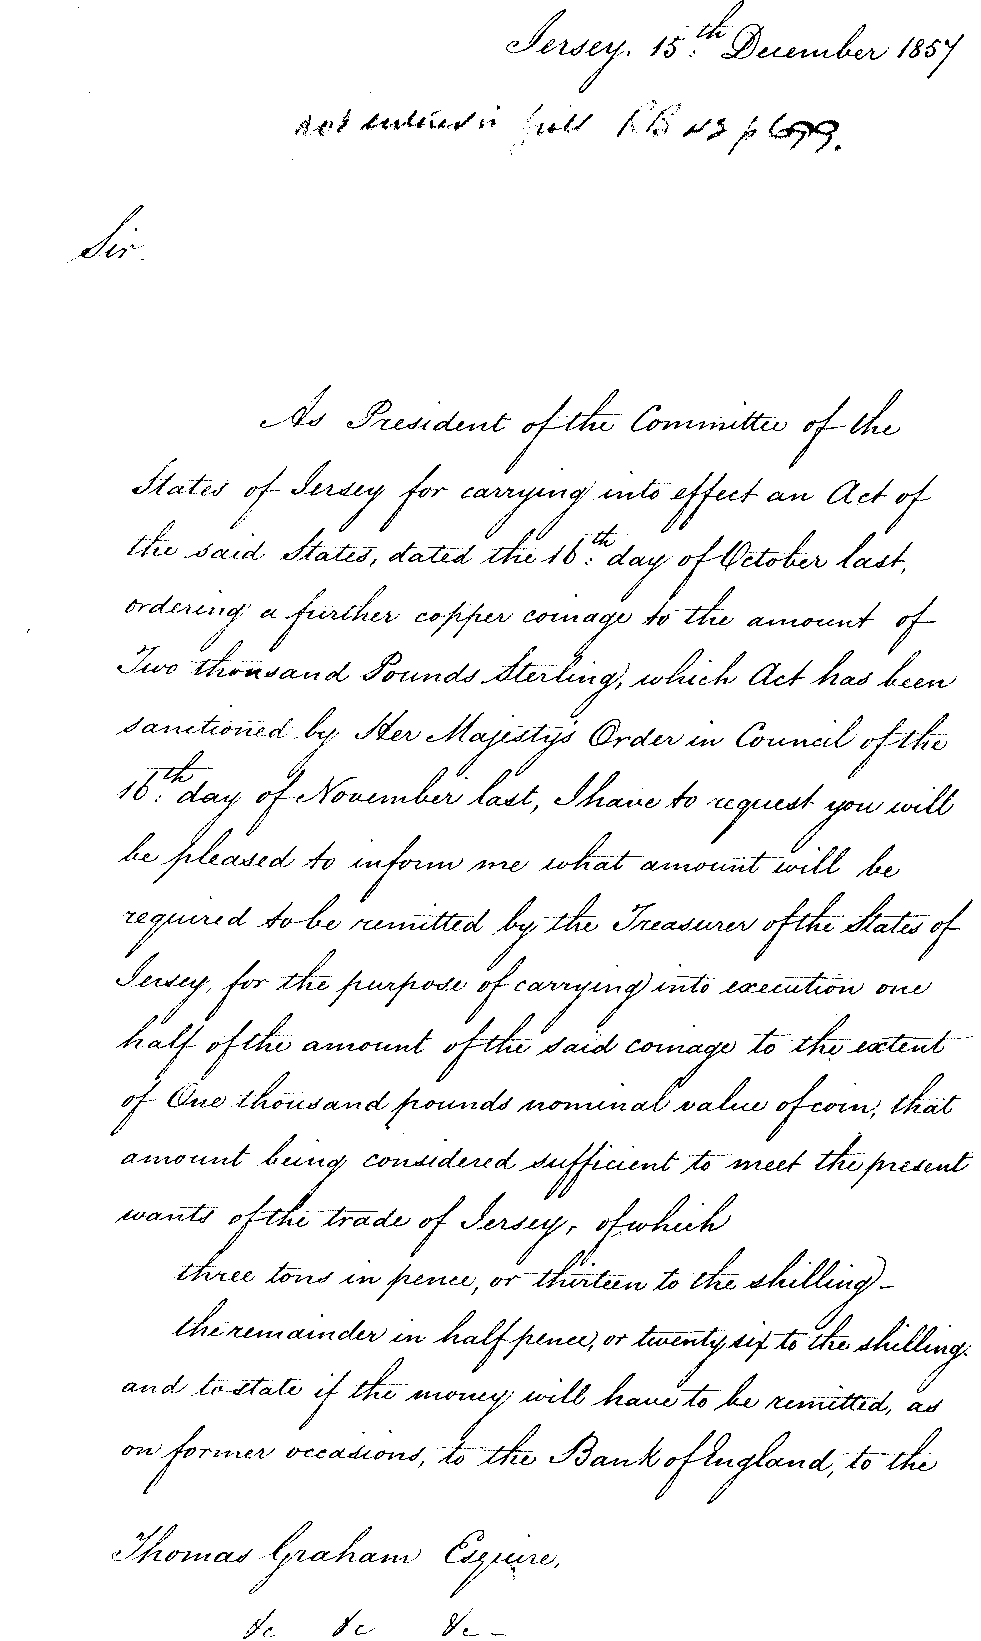 Jersey. 15th December 1857
not entered in full
Sir.
As President of the Committee of the
States of Jersey for carrying into effect an Act of
the said States, dated the 16th day of October last,
ordering a further copper coinage to the amount of
Two thousand Pounds Sterling, which Act has been
sanctioned by Her Majesty's Order in Council of the
16th day of November last, I have to request you will
be pleased to inform me what amount will be
required to be remitted by the Treasurer of the States of
Jersey, for the purpose of carrying into execution one
half of the amount of the said coinage to the extent
of One thousand pounds nominal value of coin; that
amount being considered sufficient to meet the present
wants of the trade of Jersey, of which
three tons in pence, or thirteen to the shilling –
the remainder in half pence, or twenty six to the shilling.
and to state if the money will have to be remitted, as
on former occasions, to the Bank of England, to the
Thomas Graham Esquire,
&c &c &c –